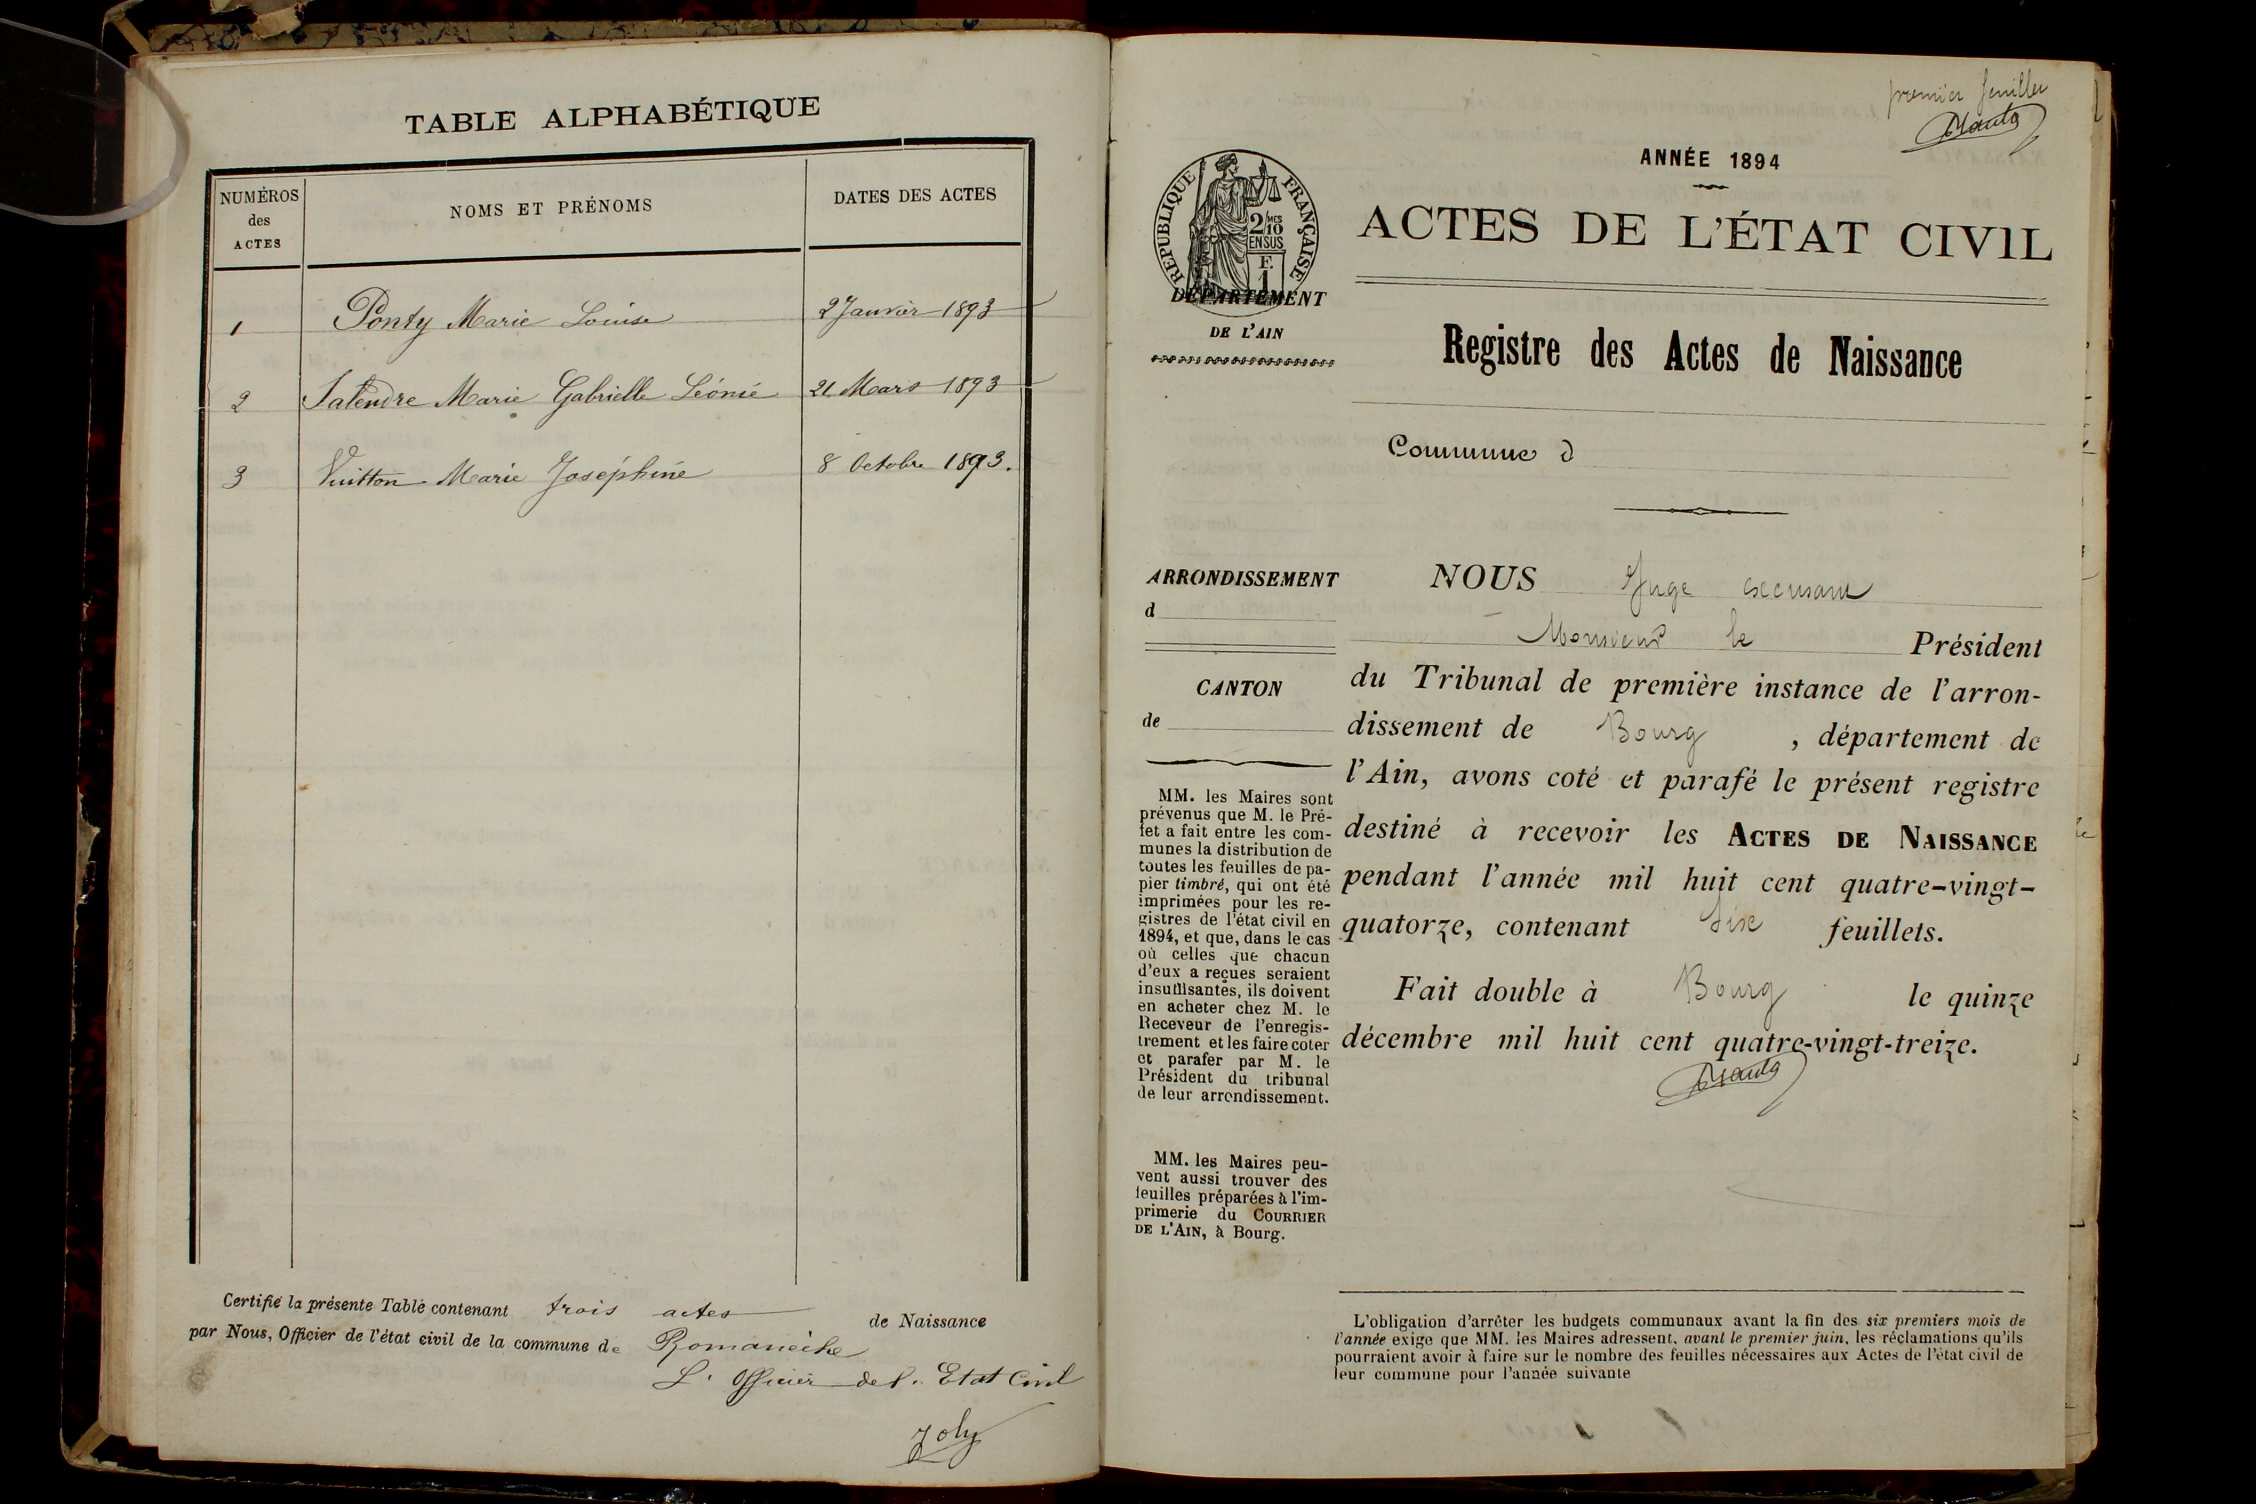 TABLE ALPHABÉTIQUE
NUMÉROS
des
ACTES
NOMS ET PRÉNOMS
DATES DES ACTES
1 Ponty Marie Louise 2 Janvier 1893
2 Salendre Marie Gabrielle Léonie 21 Mars 1893
3 Vuitton Marie Joséphine 8 Octobre 1893.
Certifié la présente Table contenant trois actes de Naissance
par Nous, Officier de l'état civil de la commune de Romanèche
L'Officier de l'Etat Civil
Joly
premier feuillet
ANNÉE 1894
RÉPUBLIQUE FRANÇAISE
2/10
MES
EN SUS
F.
1
ACTES DE L'ÉTAT CIVIL
DÉPARTEMENT
DE L'AIN
Registre des Actes de Naissance
Commune d
ARRONDISSEMENT
d
CANTON
de
MM. les Maires sont
prévenus que M. le Pré-
fet a fait entre les com-
munes la distribution de
toutes les feuilles de pa-
pier timbré, qui ont été
imprimées pour les re-
gistres de l'état civil en
1894, et que, dans le cas
où celles que chacun
d'eux a reçues seraient
insuffisantes, ils doivent
en acheter chez M. le
Receveur de l'enregis-
trement et les faire coter
et parafer par M. le
Président du tribunal
de leur arrondissement.
MM. les Maires peu-
vent aussi trouver des
feuilles préparées à l'im-
primerie du COURRIER
DE L'AIN, à Bourg.
NOUS Juge excusant
Monsieur le Président
du Tribunal de première instance de l'arron-
dissement de Bourg, département de
l'Ain, avons coté et parafé le présent registre
destiné à recevoir les ACTES DE NAISSANCE
pendant l'année mil huit cent quatre-vingt-
quatorze, contenant Six feuillets.
Fait double à Bourg le quinze
décembre mil huit cent quatre-vingt-treize.
L'obligation d'arrêter les budgets communaux avant la fin des six premiers mois de
l'année exige que MM. les Maires adressent, avant le premier juin, les réclamations qu'ils
pourraient avoir à faire sur le nombre des feuilles nécessaires aux Actes de l'état civil de
leur commune pour l'année suivante